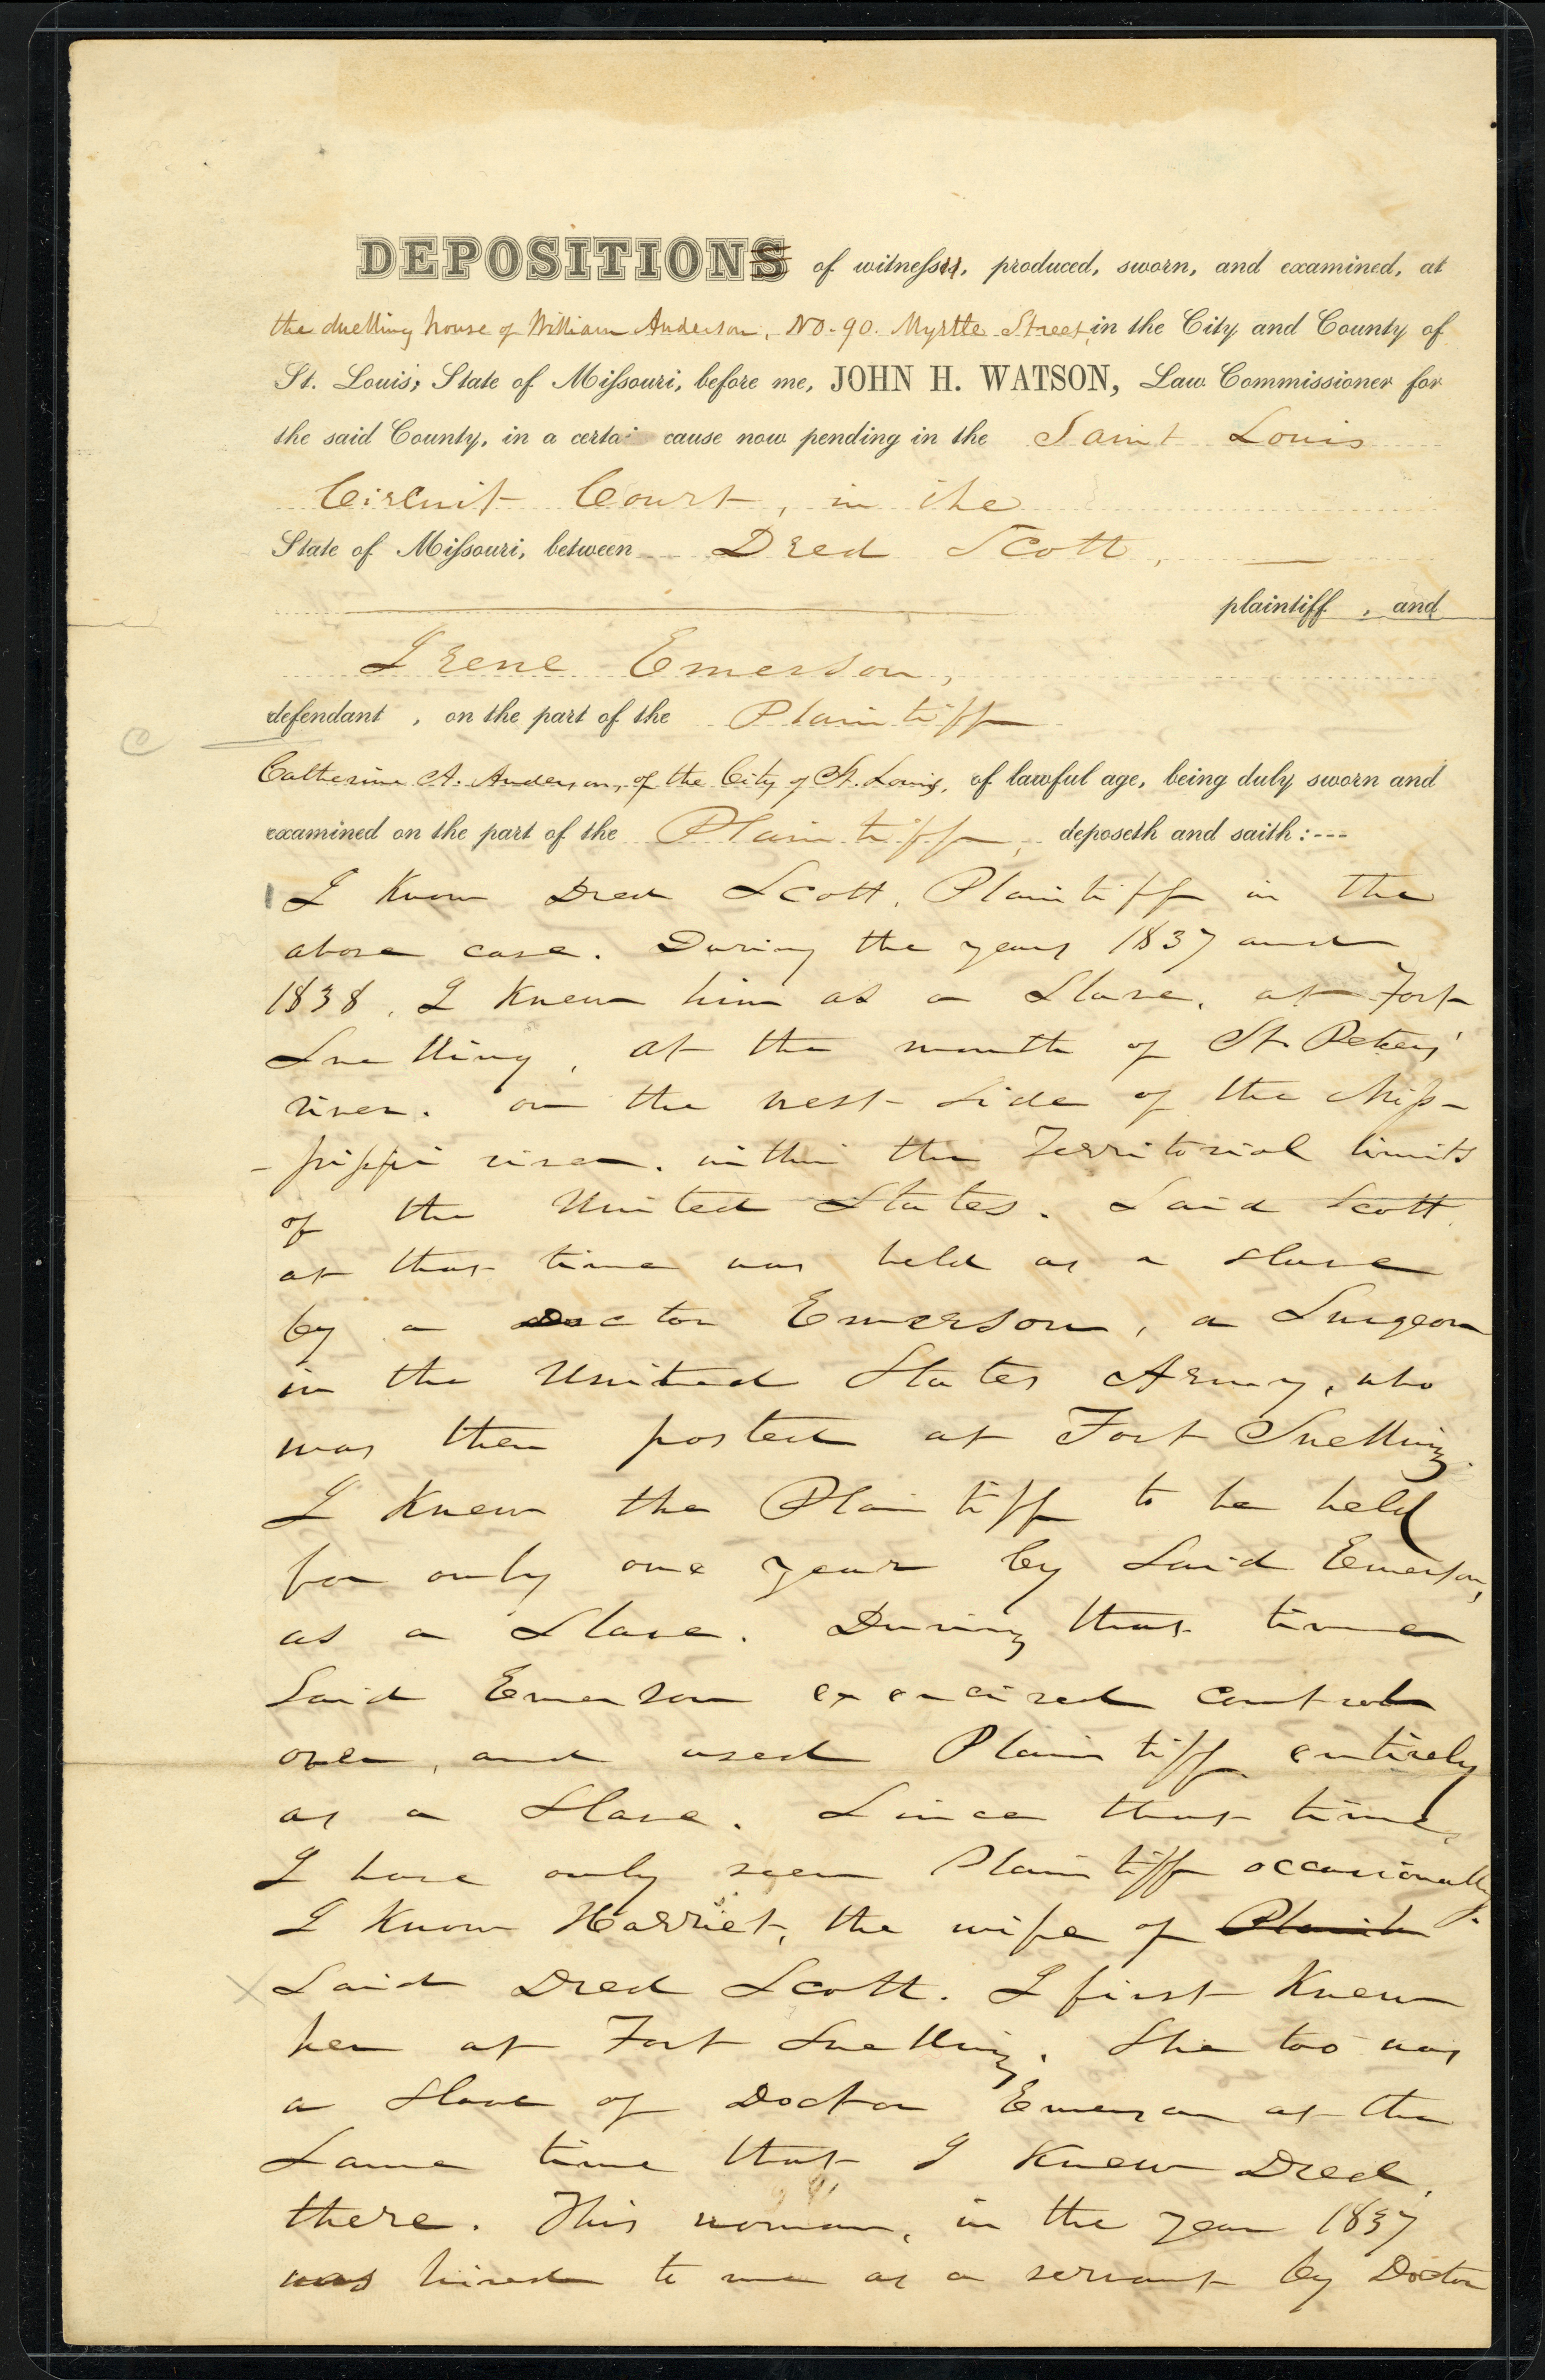 DEPOSITIONS of witnesses, produced, sworn, and examined, at
the dwelling house of William Anderson, No. 90. Myrtle Street, in the City and County of
St. Louis, State of Missouri, before me, JOHN H. WATSON, Law Commissioner for
the said County, in a certai cause now pending in the Saint Louis
Circuit Court, in the
State of Missouri, between Dred Scott,
plaintiff , and
Irene Emerson,
defendant , on the part of the Plaintiff
Catherine A. Anderson, of the City of St. Louis, of lawful age, being duly sworn and
examined on the part of the Plaintiff, deposeth and saith:---
I know Dred Scott, Plaintiff in the
above case. During the years 1837 and
1838, I knew him as a slave, at Fort
Snelling, at the mouth of St. Peters'
river, on the west side of the Miss-
-issippi river, within the Territorial limits
of the United States. Said Scott
at that time was held as a slave
by a Doctor Emerson, a Surgeon
in the United States Army, who
was then posted at Fort Snelling.
I knew the Plaintiff to be held
for only one year by said Emerson,
as a slave. During that time
said Emerson exercised control
over, and used Plaintiff entirely
as a slave. Since that time,
I have only seen Plaintiff occasionally.
I know Harriet, the wife of Plaint
said Dred Scott. I first knew
her at Fort Snelling. She too was
a slave of Doctor Emerson at the
same time that I knew Dred,
there. This woman, in the year 1837
was hired to me as a servant by Doctor